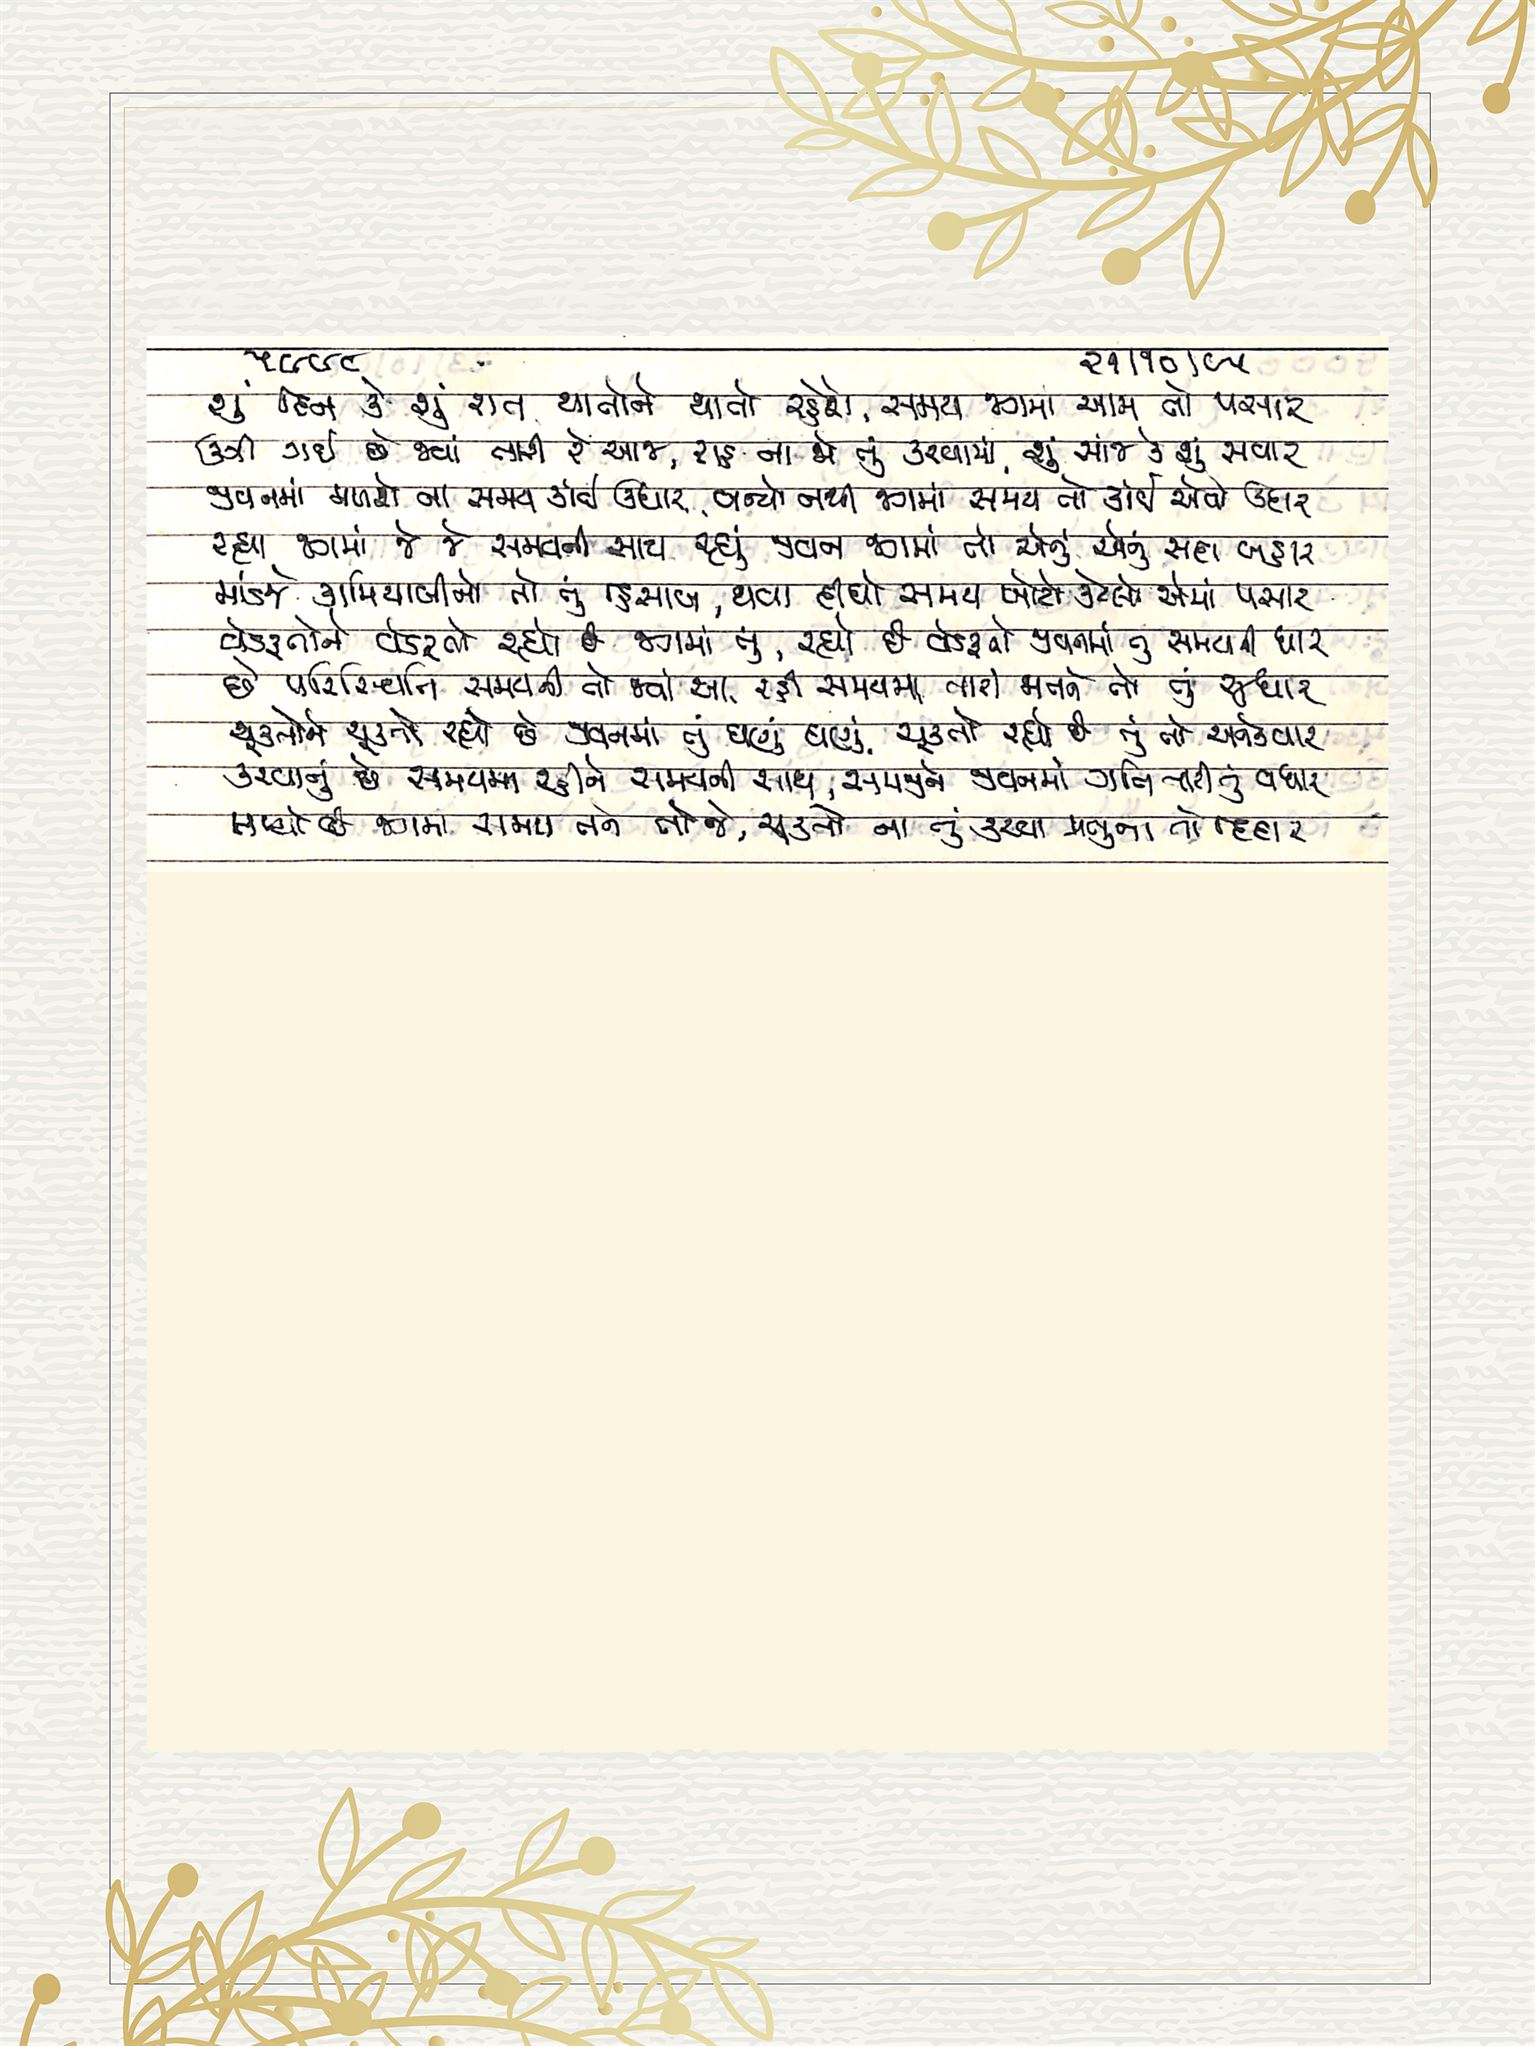 ૫૯૯૯ ૨૧/૧૦/૯૫
શું દિન કે શું રાત થાતોને થાતો રહેશે, સમય જગમાં આમ તો પસાર
ઉગી ગઈ છે જ્યાં તારી રે આજ, રાહ ના જો તું કરવામાં, શું સાંજ કે શું સવાર
જીવનમાં મળશે ના સમય કાંઈ ઉધાર, બન્યો નથી જગમાં સમય તો કાંઈ એવો ઉદાર
રહ્યા જગમાં જે જે સમયની સાથ રહ્યું જીવન જગમાં તો એનું એનું સદા બહાર
માંડજે કામિયાબીનો તો તું હિસાબ, થવા દીધો સમય ખોટો કેટલો એમાં પસાર
વેડફતોને વેડફતો રહ્યો છે જગમાં તું, રહ્યો છે વેડફતો જીવનમાં તુ સમયની ધાર
છે પરિસ્થિતિ સમયની તો જ્યાં આ, રહી સમયમાં તારા મનને તો તું સુધાર
ચૂકતોને ચૂકતો રહ્યો છે જીવનમાં તું ઘણું ઘણું, ચૂકતો રહ્યો છે તું તો અનેકવાર
કરવાનું છે સમયમાં રહીને સમયની સાથ, સમજીને જીવનમાં ગતિ તારી તું વધાર
મળ્યો છે જગમાં સમય તને તો જે, ચૂકતો ના તું કરવા પ્રભુના તો દિદાર